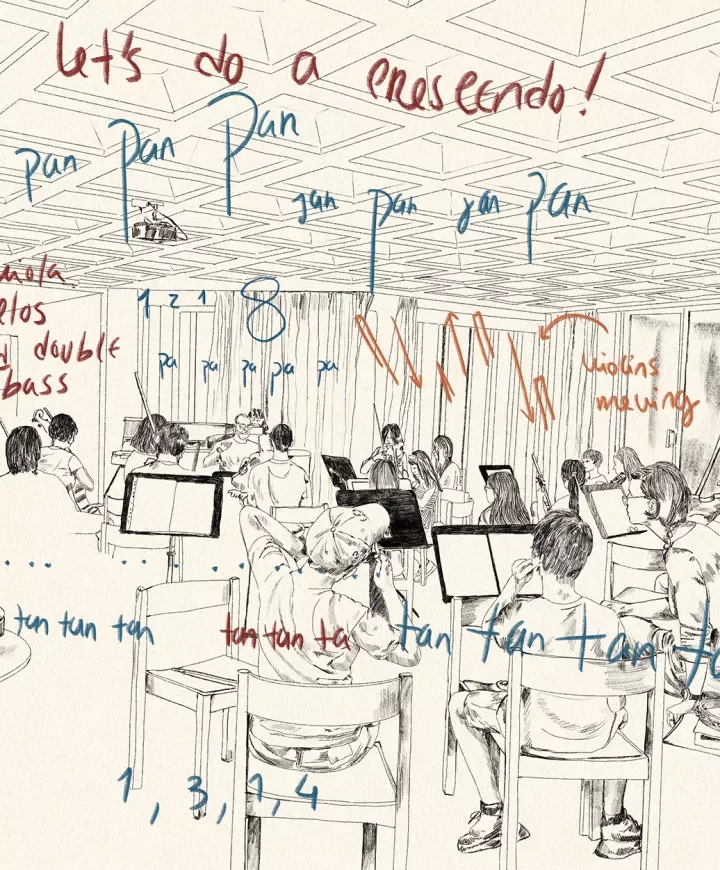 Let's do a crescendo!
pan pan pan
pan pan pan pan
viola
double
bass
1 2 1 8
pa pa pa pa pa
violins
moving
tan tan tan tan tan ta tan tan tan
1, 3, 1, 4